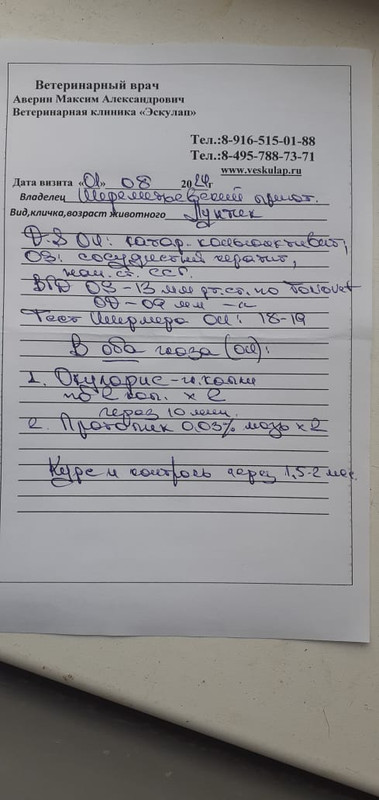 Ветеринарный врач
Аверин Максим Александрович
Ветеринарная клиника «Эскулап»
Тел.:8-916-515-01-88
Тел.:8-495-788-73-71
www.veskulap.ru
Дата визита «01» 08 2024г
Владелец Шереметьевский приют.
Вид,кличка,возраст животного Лунтик
D-S OU: катар. конъюнктивит,
OS: сосудистый кератит,
нач. ст. ССГ.
ВГД OS-13 мм рт.ст. по Tonovet
OD-09 мм -"-
Тест Ширмера OU: 18-19
В оба глаза (OU):
1. Окуларис-н.капли
по 2 кап. x 2
через 10 мин.
2. Протопик 0.03% мазь x 2
Курс и контроль через 1,5-2 мес.